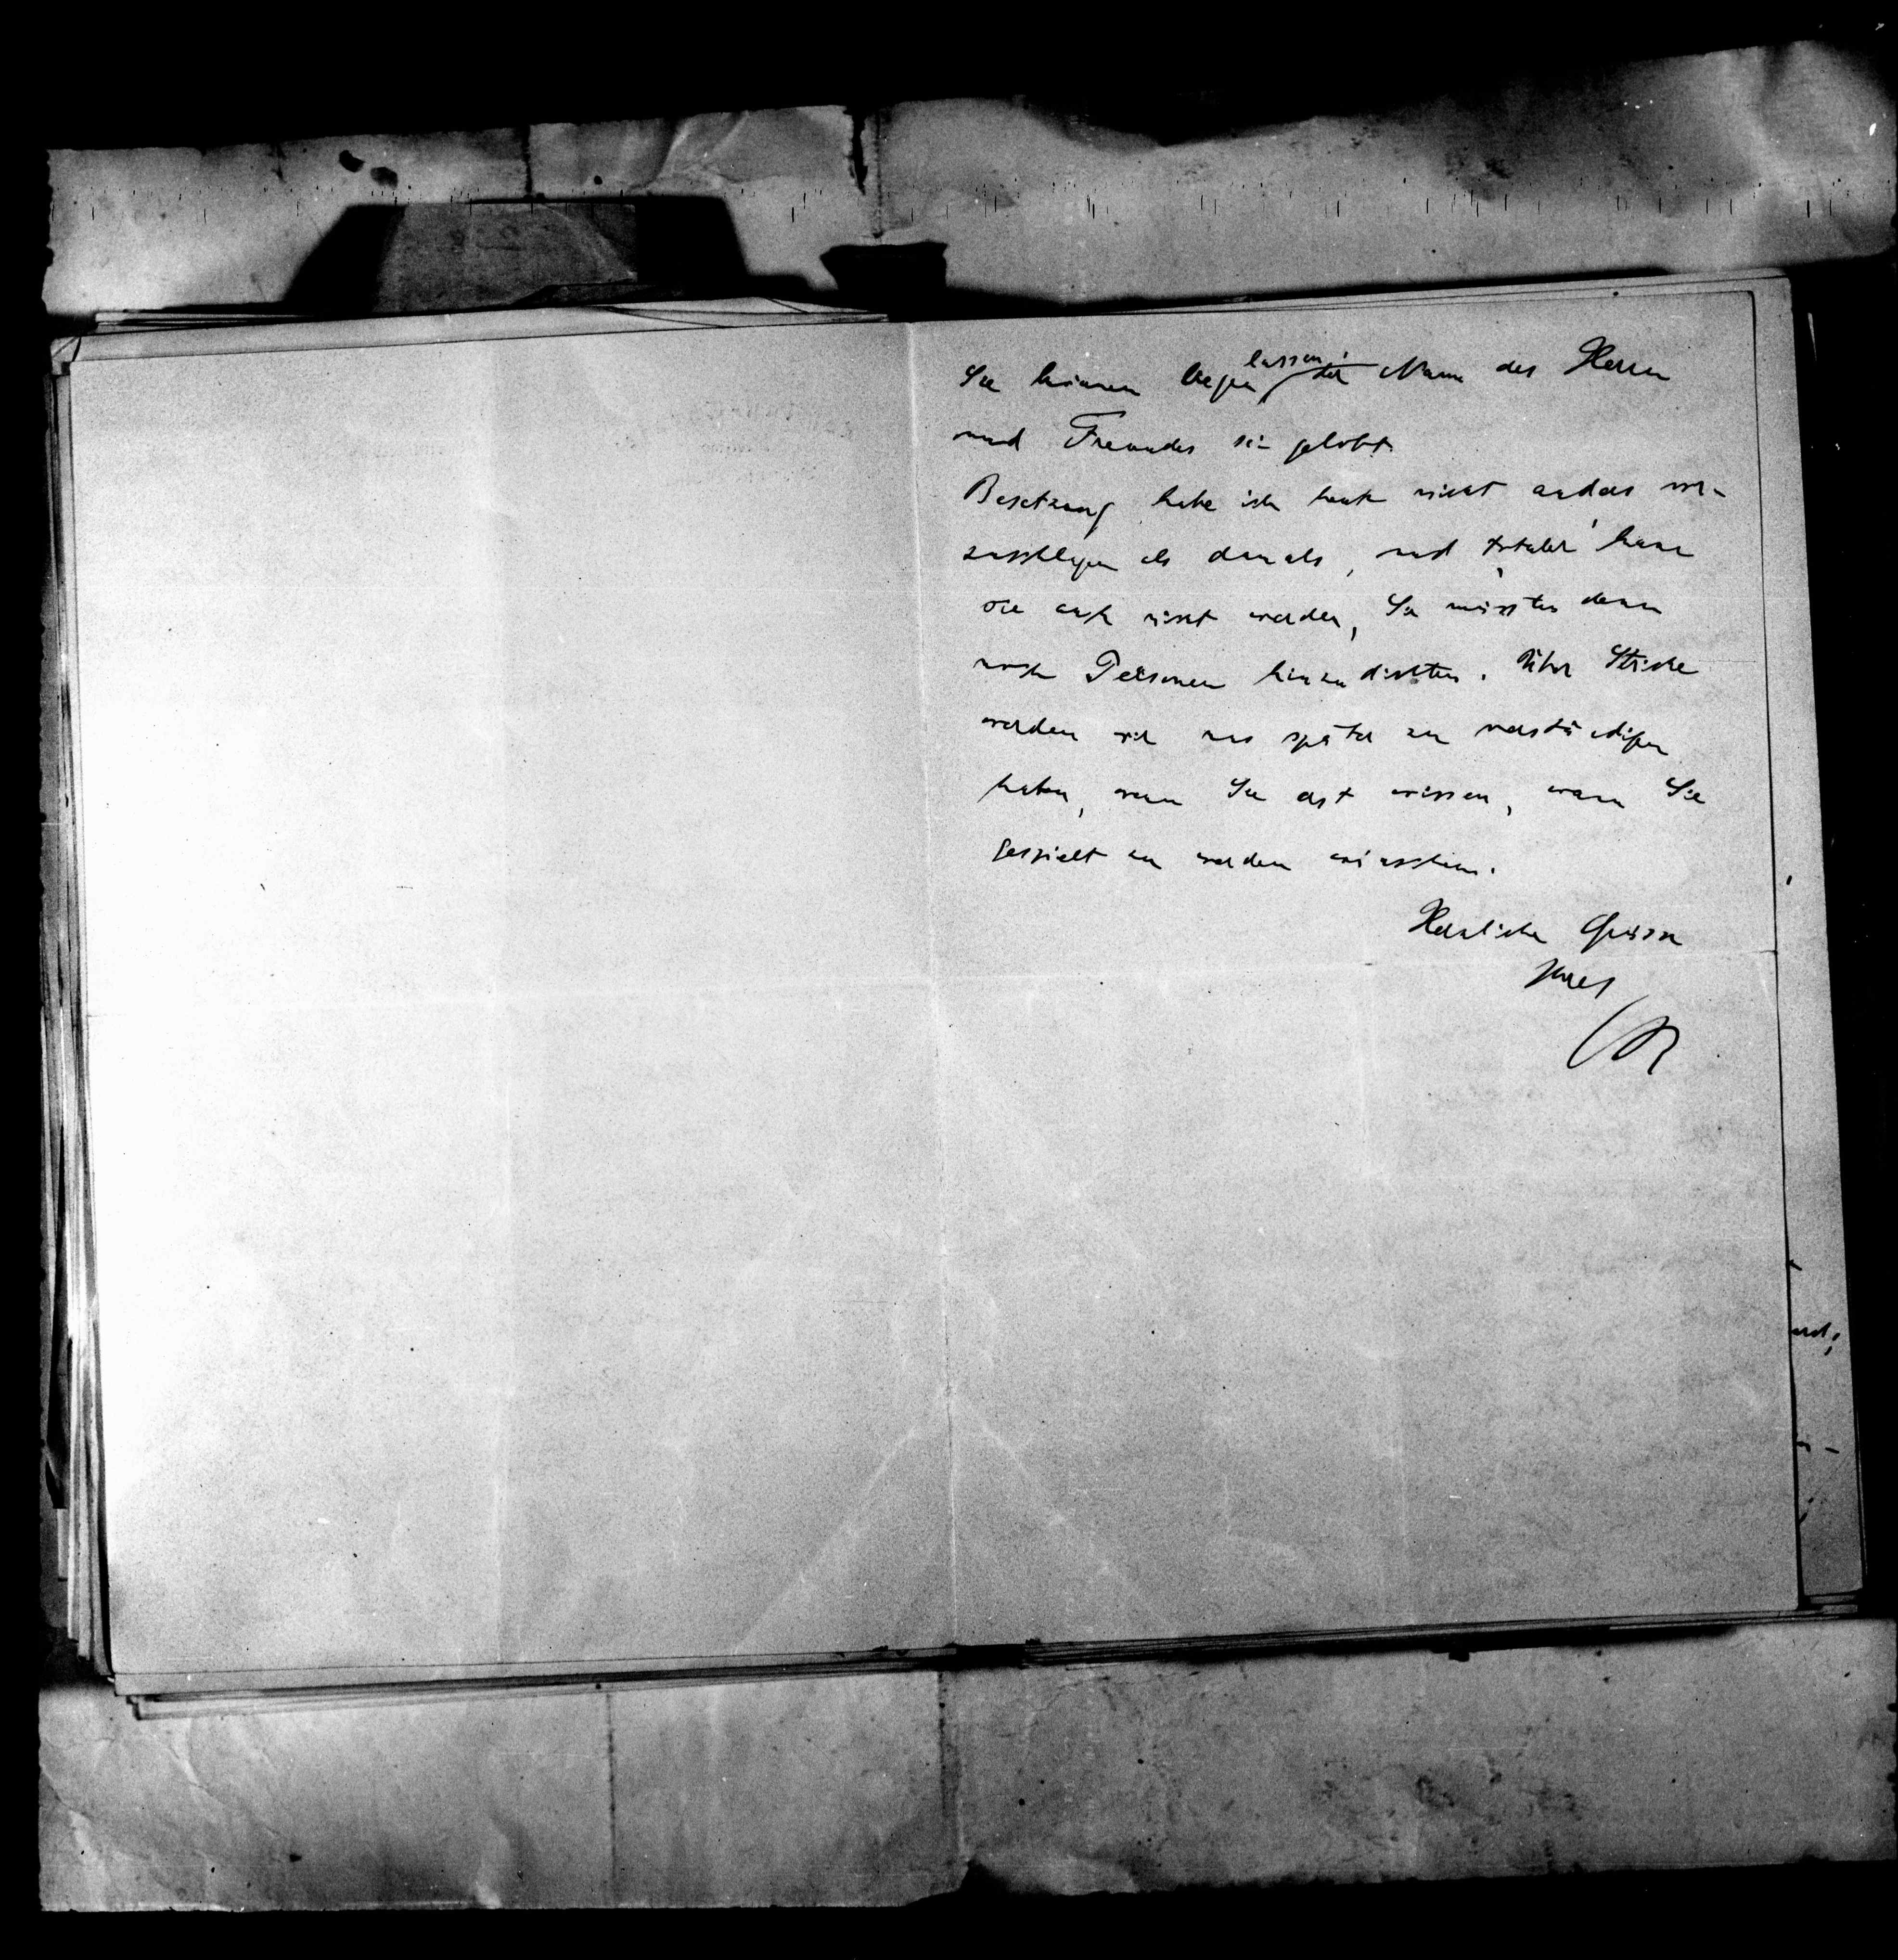 Sie können liegen lassen, der Name des Herrn
und Freundes sei gelobt.
Besetzung habe ich heute nicht anders vor-
zuschlagen als damals, und totaler kann
sie auch nicht werden, Sie müssten denn
noch Personen hinzudichten. Über Striche
werden wir uns später zu verständigen
haben, wenn Sie erst wissen, wann Sie
gespielt zu werden wünschen.
Herzliche Grüsse
Ihres